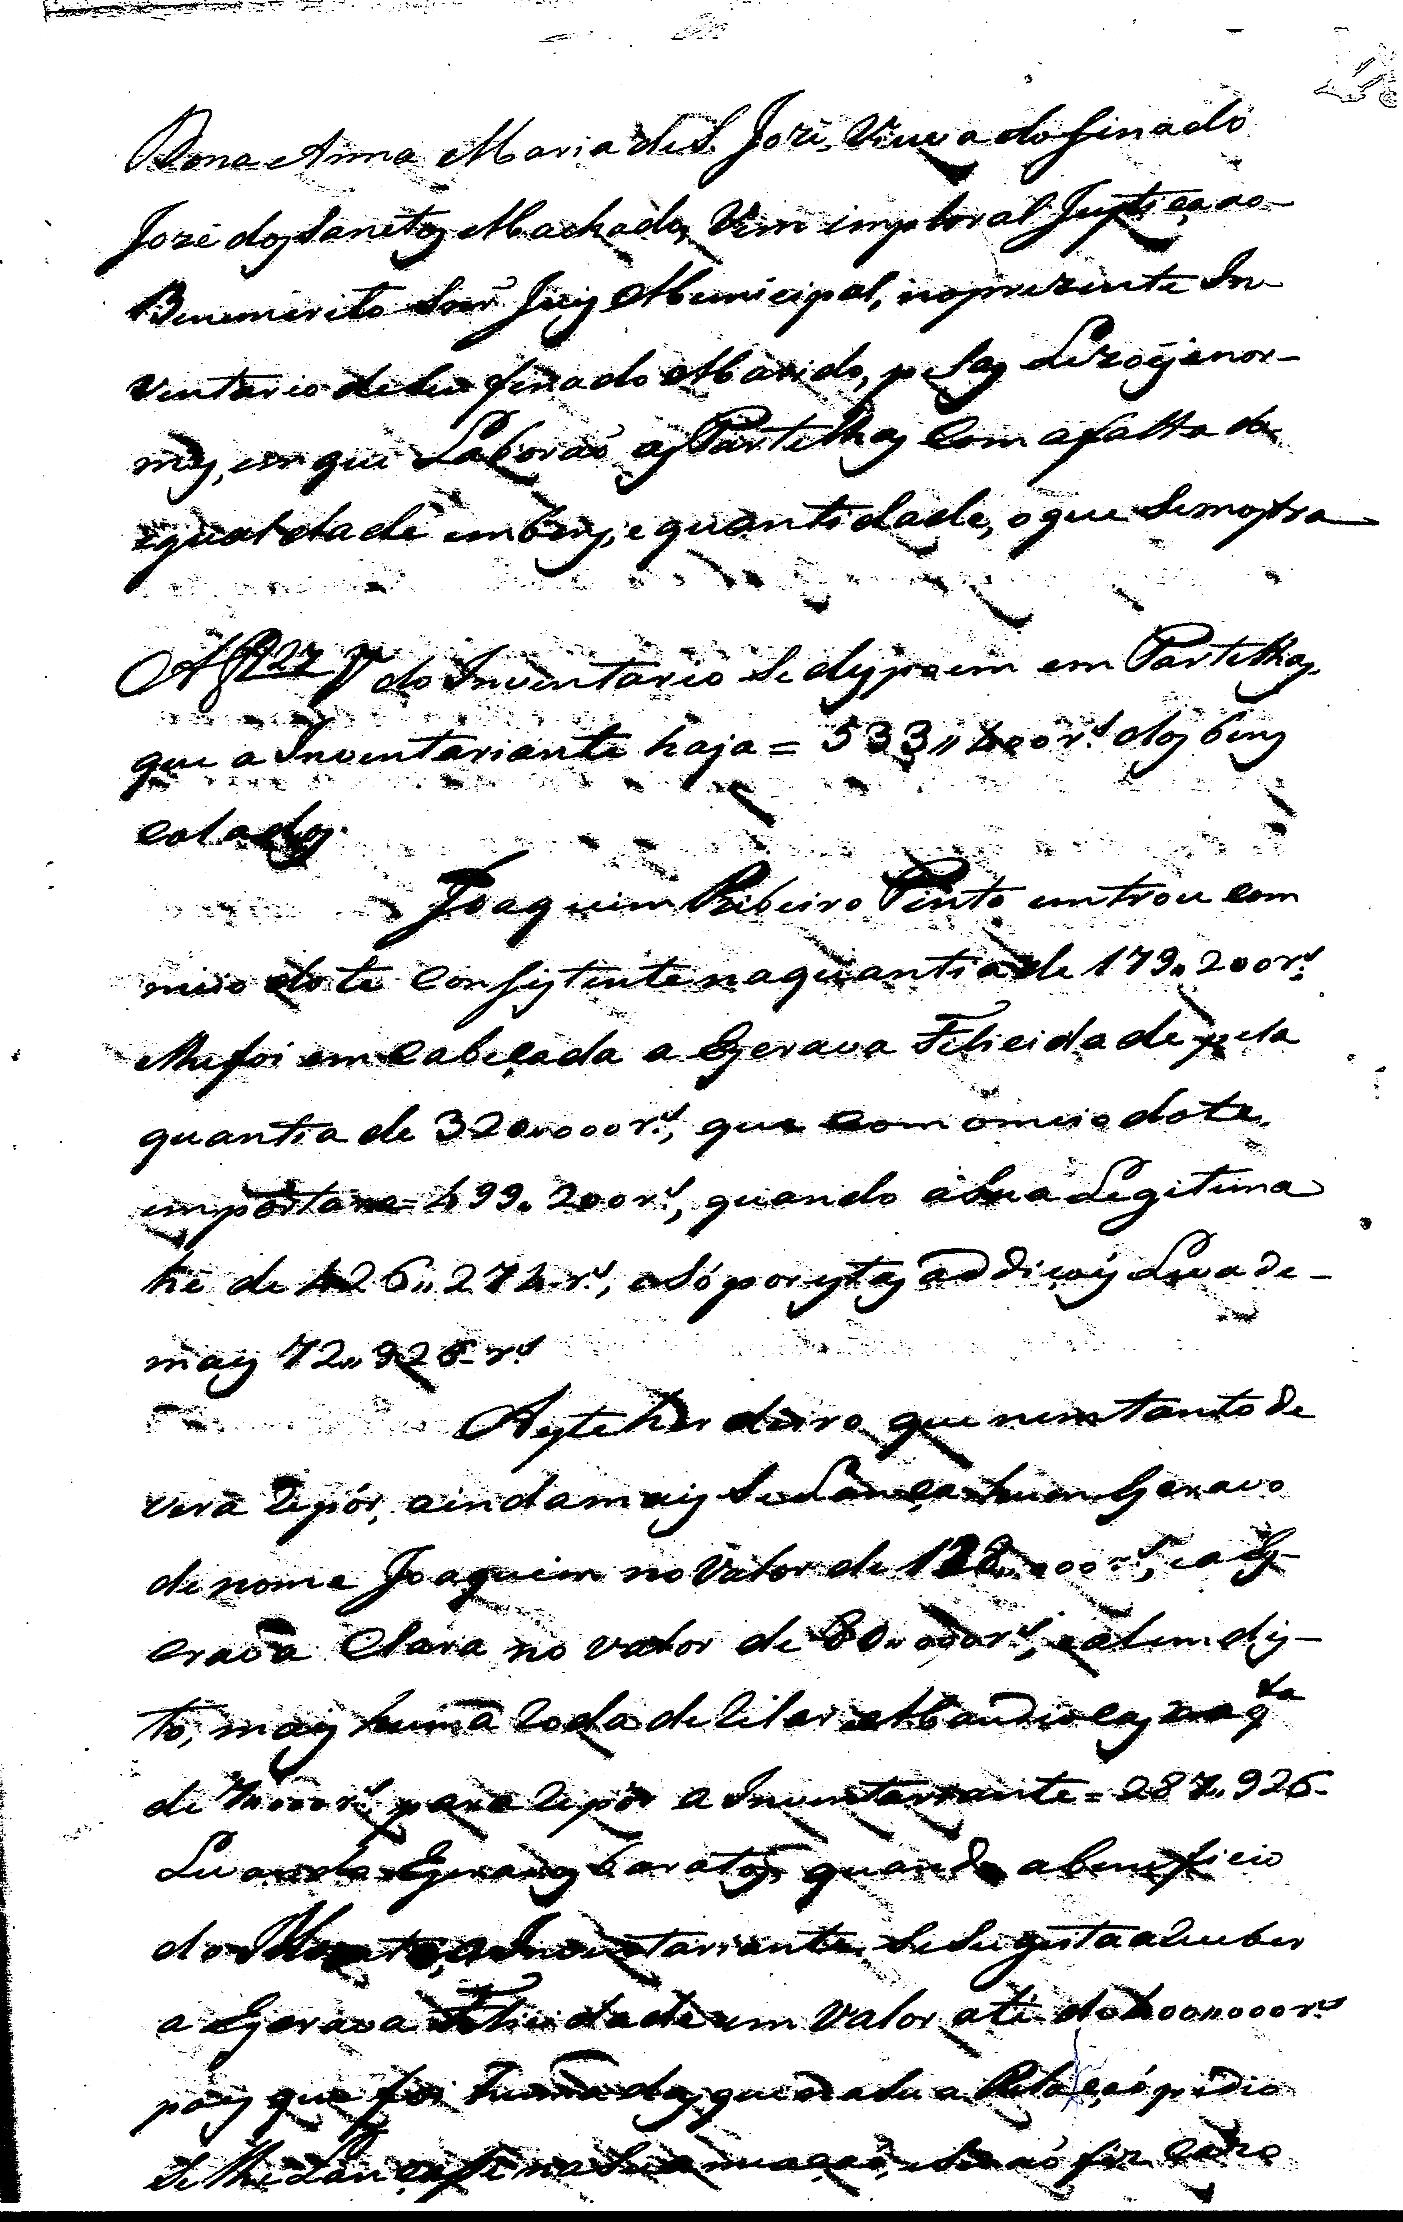 Dona Anna Maria de S. Jozé, Viuva do finado
Jozé dos Sanctos Machado, Vem implorar Justiça ao
Benemerito Snr Juiz Municipal, no prezente In-
ventario de Seu finado Marido, pelas Lezoẽs enor-
mes, em que Laboraõ as Partelhas Com a falta de
egualdade em bens, e quantidade, o que Se mostra
A f 27 V do Inventario Se dispoem em Partelhas,
que a Inventariante haja = 533,,400 r.s dos bens
colados.
Joaquim Ribeiro Pinto entrou com
meio dote Consistente na quantia de 179,,200 r.s
Lhe foi emcabeçada a Escrava Felicidade pela
quantia de 320,,000 r.s, que com o meio dote,
importa = 499,,200 r.s, quando a Sua Legitima
hé de 426,,274 r.s, e Só por estas addiçoẽs Leva de-
mais 72,,926 r.s
A este herdeiro que nem tanto de
vera Repór, ainda mais Se Lança hum Escravo
de nome Joaquim no Valor de 128,,000 r.s, e a Es-
crava Clara no valor de 80,,000 r.s, e alem dis-
to, mais huma Roda de Rilar Mandiocas na q.ta
de 7,,000 r.s para Repór a Inventariante = 287,,926
Levando Escravos baratos, quando a beneficio
do Monte, a Inventariante Se Sugeita a Receber
a Escrava Felicidade em Valor até do 400,,000 r.s
pois que foi huma das que na Sua Relaçaõ pedio
Se lhe Lançasse na Sua meaçaõ, e Se naõ fez caso